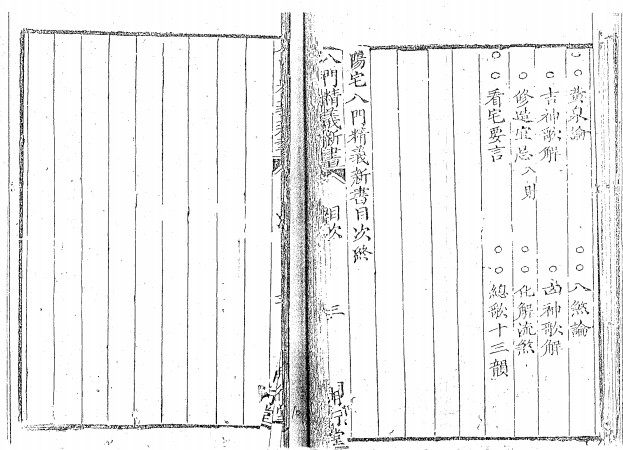 ○○黄泉論
○○八煞論
○吉神歌解
○凶神歌解
○修造宜忌入則
○○化解流煞
○○看宅要言
○○總歌十三韻
陽宅八門精義新書目次終
八門精義新書
目次
三
堂